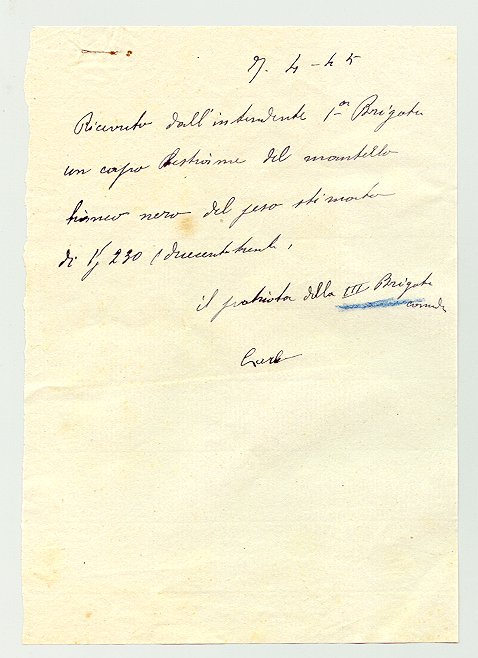 7. 4 - 45
Ricevuto dall'intendente 1ª Brigata
un capo bestiame del mantello
bianco nero del peso stimato
di Kg 230 (duecentotrenta,
il patriota della III Brigata